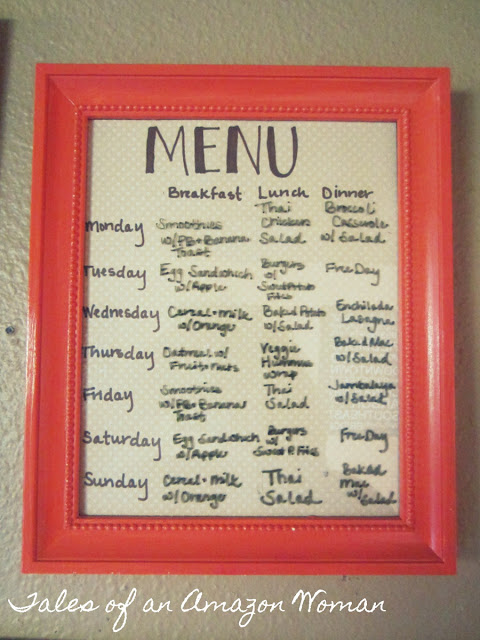 MENU
Breakfast Lunch Dinner
Monday
Smoothies
w/PB+Banana
Toast
Thai
Chicken
Salad
Broccoli
Casserole
w/ Salad
Tuesday
Egg Sandwhich
w/Apple
Burgers
w/
Sweet Potato
Fries
Free Day
Wednesday
Cereal + Milk
w/Orange
Baked Potato
w/Salad
Enchilada
Lasagna
Thursday
Oatmeal w/
Fruit + nuts
Veggie
Hummus
wrap
Baked Mac
w/ Salad
Friday
Smoothies
w/PB+Banana
Toast
Thai
Salad
Jambalaya
w/ Salad
Saturday
Egg Sandwhich
w/Apple
Burgers
w/
Sweet P. Fries
Free Day
Sunday
Cereal + Milk
w/Orange
Thai
Salad
Baked
Mac
w/ Salad
Tales of an Amazon Woman